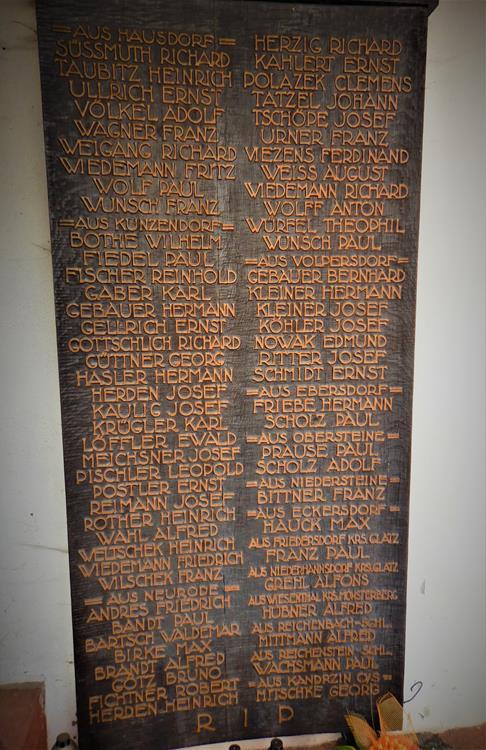 =AUS HAUSDORF=
SÜSSMUTH RICHARD
TAUBITZ HEINRICH
ULLRICH ERNST
VÖLKEL ADOLF
WAGNER FRANZ
WEIGANG RICHARD
WIEDEMANN FRITZ
WOLF PAUL
WUNSCH FRANZ
=AUS KUNZENDORF=
BOTHE WILHELM
FIEDEL PAUL
FISCHER REINHOLD
GABER KARL
GEBAUER HERMANN
GELLRICH ERNST
GOTTSCHLICH RICHARD
GÜTTNER GEORG
HASLER HERMANN
HERDEN JOSEF
KAULIG JOSEF
KRÜGLER KARL
LÖFFLER EWALD
MEICHSNER JOSEF
PISCHLER LEOPOLD
POSTLER ERNST
REIMANN JOSEF
ROTHER HEINRICH
WAHL ALFRED
WELTSCHEK HEINRICH
WIEDEMANN FRIEDRICH
WILSCHEK FRANZ
=AUS NEURODE=
ANDRES FRIEDRICH
BANDT PAUL
BARTSCH WALDEMAR
BIRKE MAX
BRANDT ALFRED
GÖTZ BRUNO
FICHTNER ROBERT
HERDEN HEINRICH
HERZIG RICHARD
KAHLERT ERNST
POLAZEK CLEMENS
TATZEL JOHANN
TSCHÖPE JOSEF
URNER FRANZ
VIEZENS FERDINAND
WEISS AUGUST
WIEDEMANN RICHARD
WOLFF ANTON
WÜRFEL THEOPHIL
WUNSCH PAUL
=AUS VOLPERSDORF=
GEBAUER BERNHARD
KLEINER HERMANN
KLEINER JOSEF
KÖHLER JOSEF
NOWAK EDMUND
RITTER JOSEF
SCHMIDT ERNST
=AUS EBERSDORF=
FRIEBE HERMANN
SCHOLZ PAUL
=AUS OBERSTEINE=
PRAUSE PAUL
SCHOLZ ADOLF
=AUS NIEDERSTEINE=
BITTNER FRANZ
=AUS ECKERSDORF=
HAUCK MAX
AUS FRIEDERSDORF KRS. GLATZ
FRANZ PAUL
AUS NIEDERHANNSDORF KRS. GLATZ
GREHL ALFONS
AUS WIESENTHAL KRS. MÜNSTERBERG
HÜBNER ALFRED
AUS REICHENBACH-SCHL.
MITTMANN ALFRED
AUS REICHENSTEIN-SCHL.
WACHSMANN PAUL
=AUS KANDRZIN O/S=
MITSCHKE GEORG
R I P